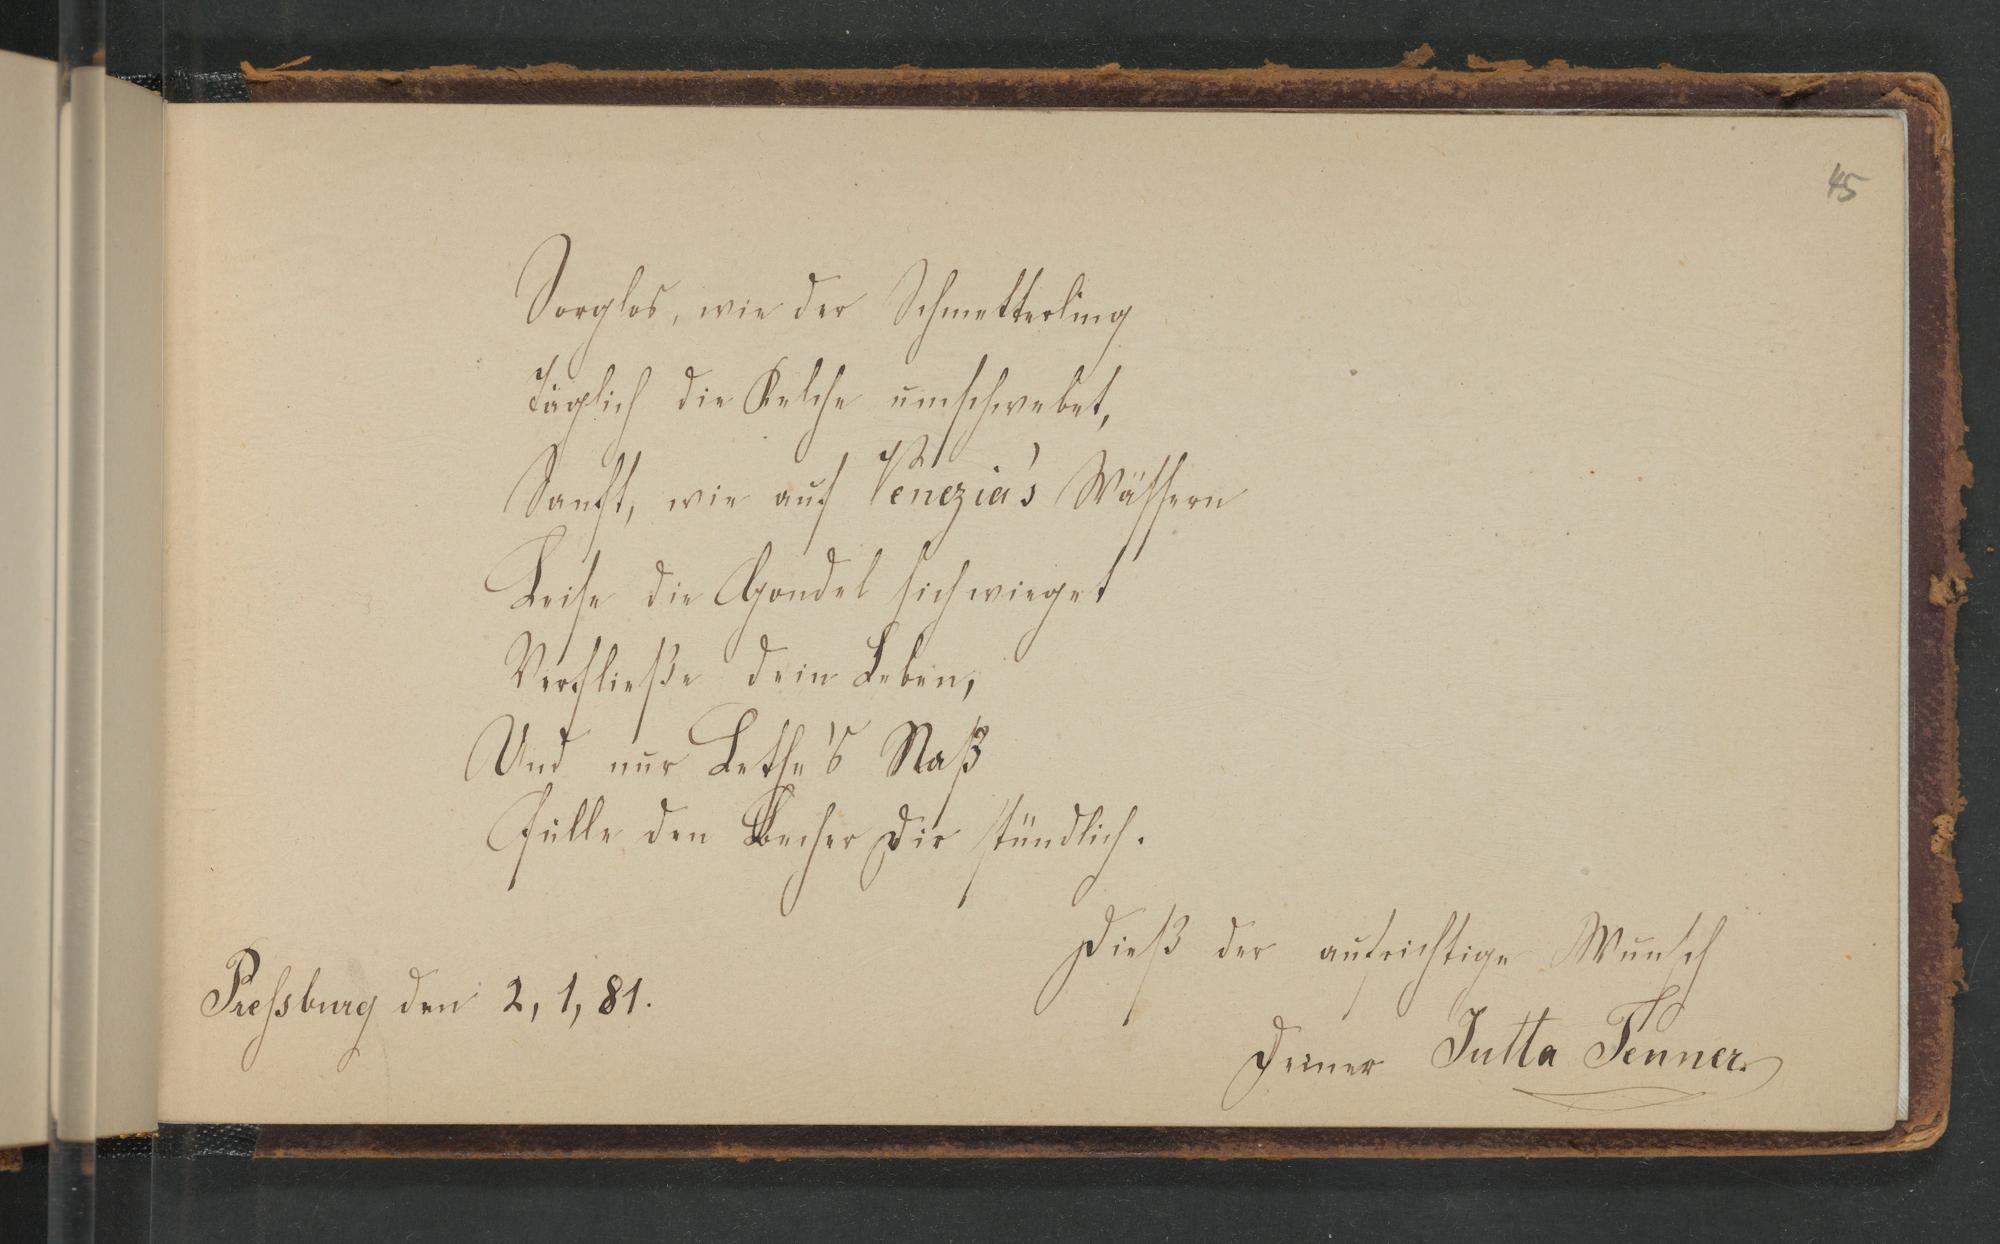 45
Sorglos, wie der Schmetterling
Täglich die Kelche umschwebet,
Sanft, wie auf Venezia's Wässern
Leise die Gondel sich wieget
Verfließe dein Leben,
Und nur Lethe's Naß
Fülle den Becher Dir stündlich.
Dieß der aufrichtige Wunsch
Pressburg den 2, 1, 81.
Deiner Jutta Fenner.